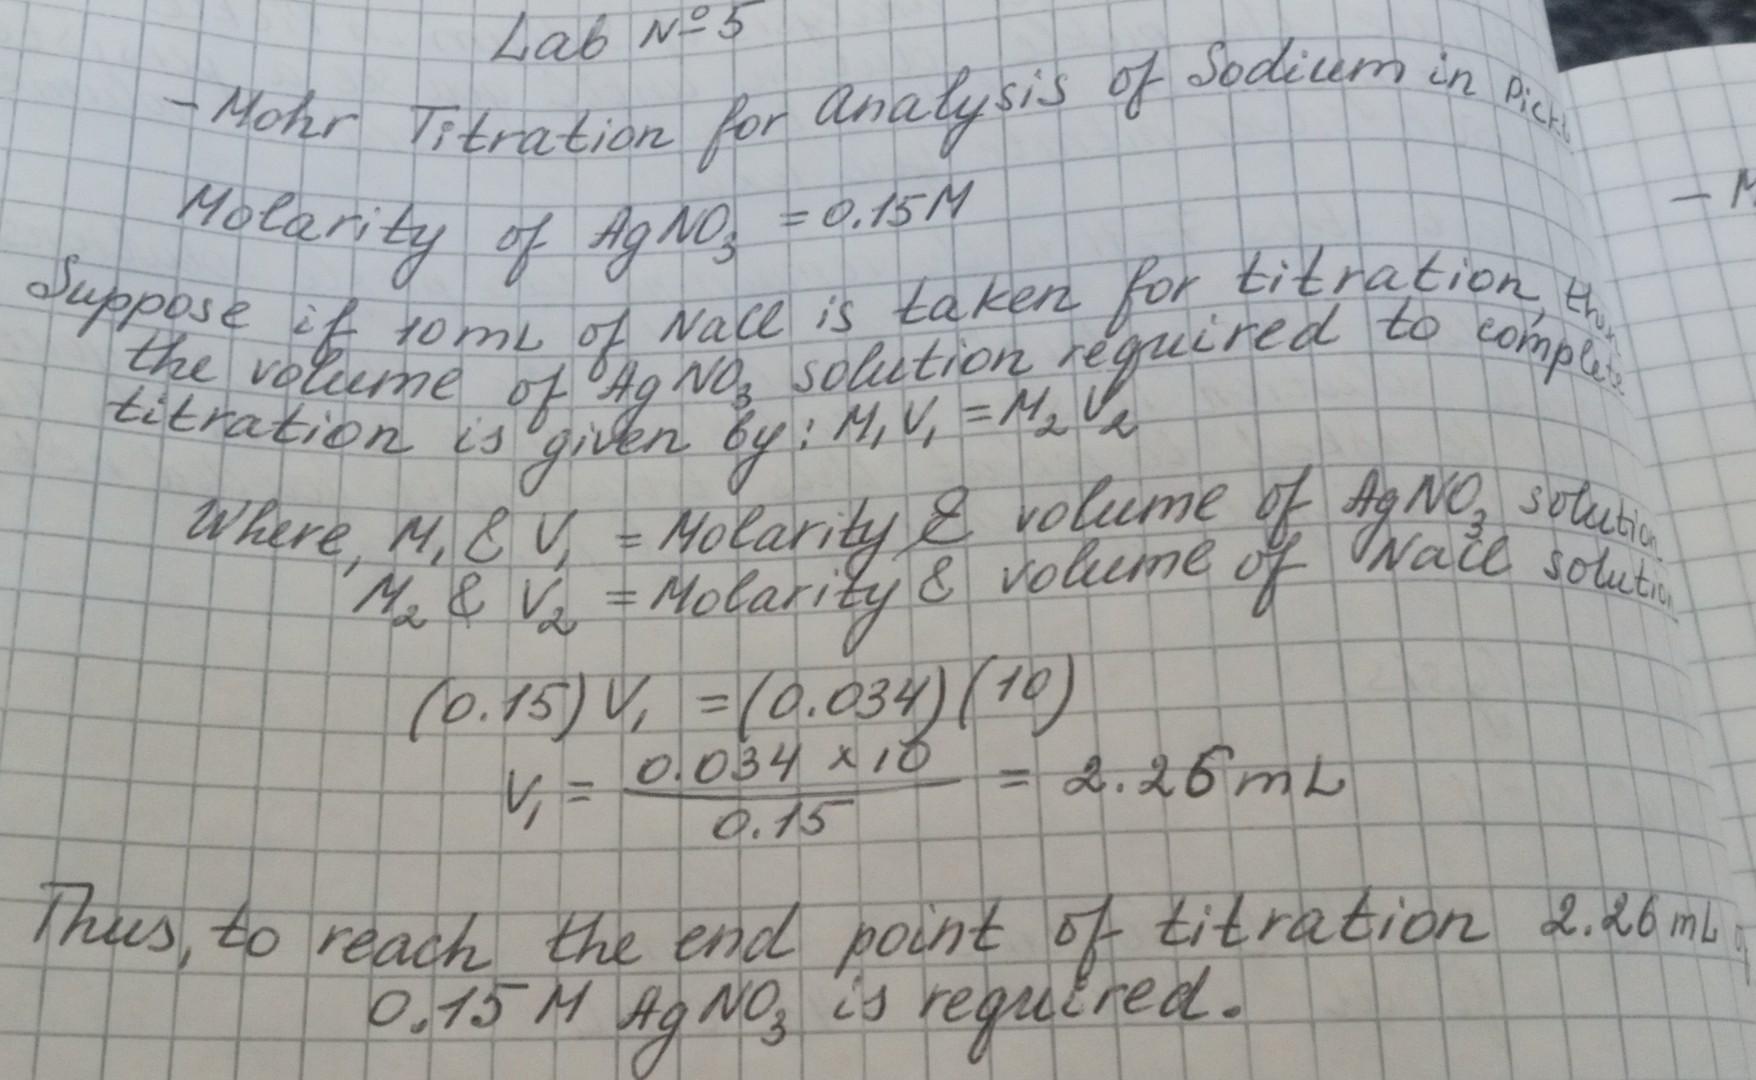 Lab Nº5
- Mohr Titration for Analysis of Sodium in
Molarity of AgNO₃ = 0.15M
Suppose if 10mL of NaCl is taken for titration,
the volume of AgNO₃ solution required to complete
titration is given by: M₁V₁ = M₂V₂
Where, M₁ & V₁ = Molarity & volume of AgNO₃ solution
M₂ & V₂ = Molarity & volume of NaCl solution
(0.15)V₁ = (0.034)(10)
V₁ = 0.034 x 10 / 0.15 = 2.26 mL
Thus, to reach the end point of titration 2.26 mL
0.15 M AgNO₃ is required.
- M